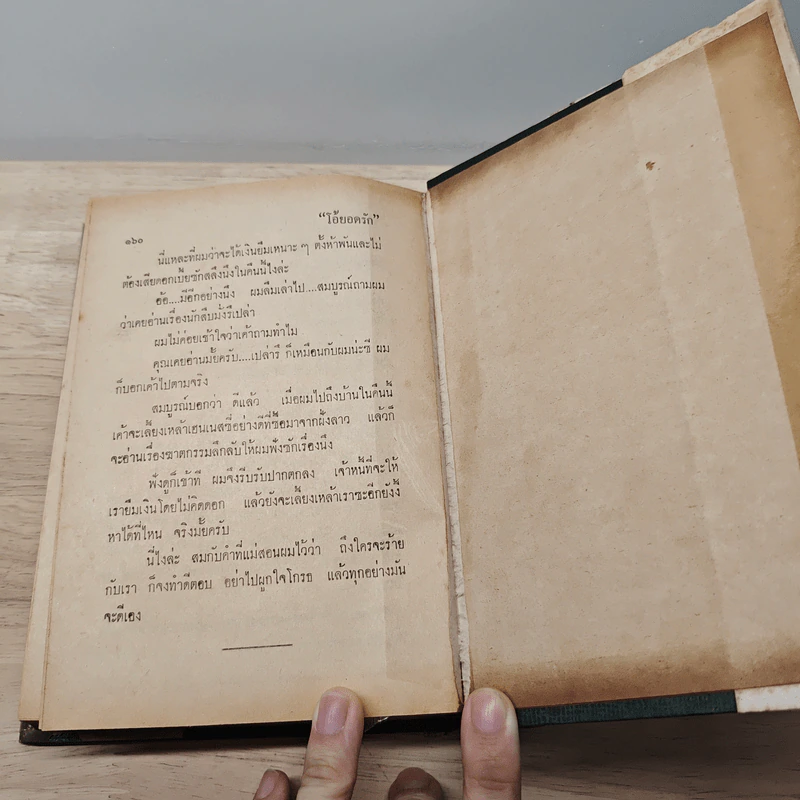 “โอ้ยอดรัก”
๑๖๐
นี่แหละที่ผมว่าจะได้เงินยืมเหนาะ ๆ ตั้งห้าพันและไม่
ต้องเสียดอกเบี้ยซักสลึงนึงในคืนนี้ไงล่ะ
อ้อ....มีอีกอย่างนึง ผมลืมเล่าไป....สมบูรณ์ถามผม
ว่าเคยอ่านเรื่องนักสืบมั่งรึเปล่า
ผมไม่ค่อยเข้าใจว่าเค้าถามทำไม
คุณเคยอ่านมั้ยครับ....เปล่ารึ ก็เหมือนกับผมน่ะซี ผม
ก็บอกเค้าไปตามจริง
สมบูรณ์บอกว่า ดีแล้ว เมื่อผมไปถึงบ้านในคืนนี้
เค้าจะเลี้ยงเหล้าเฮนเนสซี่อย่างดีที่ซื้อมาจากฝั่งลาว แล้วก็
จะอ่านเรื่องฆาตกรรมลึกลับให้ผมฟังซักเรื่องนึง
ฟังดูก็เข้าที ผมจึงรีบรับปากตกลง เจ้าหนี้ที่จะให้
เรายืมเงินโดยไม่คิดดอก แล้วยังจะเลี้ยงเหล้าเราซะอีกยังงี้
หาได้ที่ไหน จริงมั้ยครับ
นี่ไงล่ะ สมกับคำที่แม่สอนผมไว้ว่า ถึงใครจะร้าย
กับเรา ก็จงทำดีตอบ อย่าไปผูกใจโกรธ แล้วทุกอย่างมัน
จะดีเอง